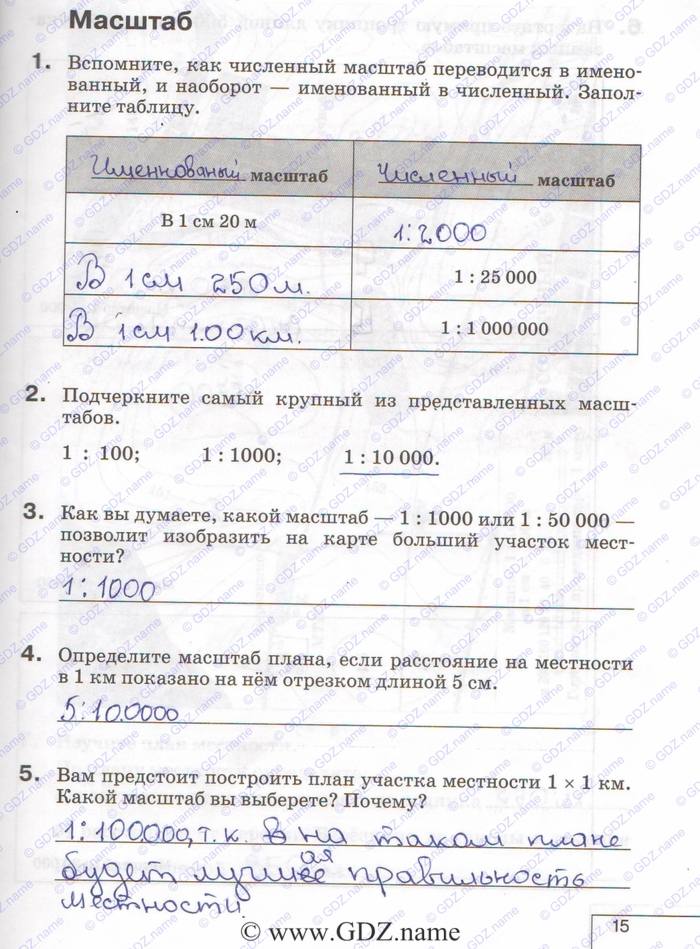 Масштаб
1. Вспомните, как численный масштаб переводится в имено-
ванный, и наоборот — именованный в численный. Запол-
ните таблицу.
Именнованый масштаб
Численный масштаб
В 1 см 20 м
1:2000
В 1 см 250 м.
1 : 25 000
В 1 см 100 км.
1 : 1 000 000
2. Подчеркните самый крупный из представленных масш-
табов.
1 : 100; 1 : 1000; 1 : 10 000.
3. Как вы думаете, какой масштаб — 1 : 1000 или 1 : 50 000 —
позволит изобразить на карте больший участок мест-
ности?
1:1000
4. Определите масштаб плана, если расстояние на местности
в 1 км показано на нём отрезком длиной 5 см.
5:100000
5. Вам предстоит построить план участка местности 1 × 1 км.
Какой масштаб вы выберете? Почему?
1:100000, т.к. в на таком плане
ая
будет лучшее правильность
местности
© www.GDZ.name
15